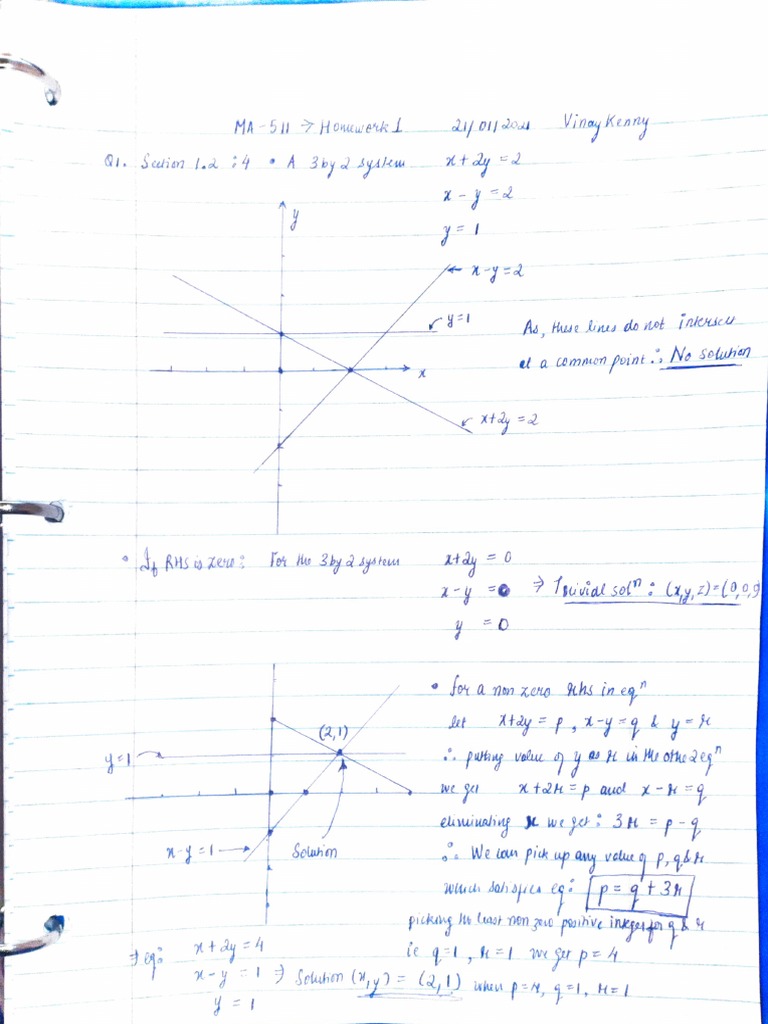 MA-511 → Homework 1 21/01/2021 Vinay Kenny
Q1. Section 1.2 : 4 • A 3 by 2 system x + 2y = 2
x - y = 2
y = 1
y
x-y=2
y=1
As, these lines do not intersect
at a common point ∴ No solution
x
x+2y=2
• If RHS is zero: For the 3 by 2 system x+2y = 0
x-y = 0 ⇒ Trivial solⁿ : (x,y,z)=(0,0,0)
y = 0
• for a non zero rhs in eqⁿ
let x+2y = p, x-y = q & y = r
(2,1)
y=1
∴ putting value of y as r in the othe 2 eqⁿ
we get x+2r = p and x-r = q
eliminating x we get: 3r = p-q
x-y=1 → Solution
∴ We can pick up any value of p, q & r
which satisfies eq: p = q + 3r
picking the least non zero positive integer for q & r
ie q=1, r=1 we get p=4
⇒ eq: x+2y = 4
x-y = 1 ⇒ Solution (x,y) = (2,1) when p=4, q=1, r=1
y = 1